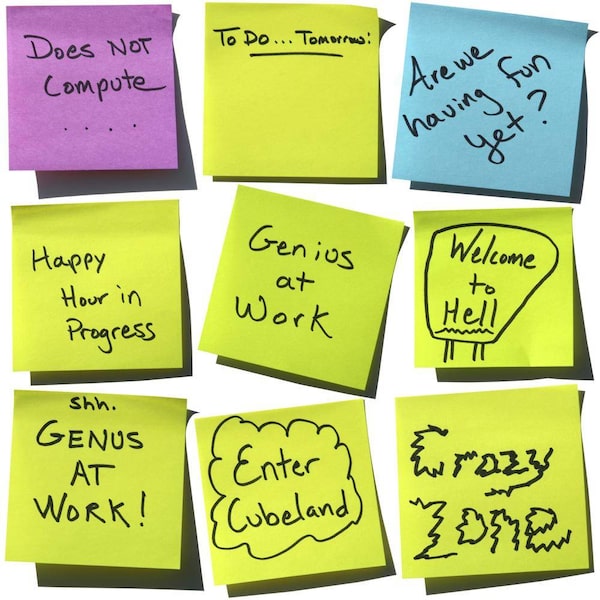 Does Not
Compute
. . . .
To Do... Tomorrow!
Are we
having fun
yet?
Happy
Hour in
Progress
Genius
at
Work
Welcome
to
Hell
Shh.
GENUS
AT
WORK!
Enter
Cubeland
Crazy
Zone